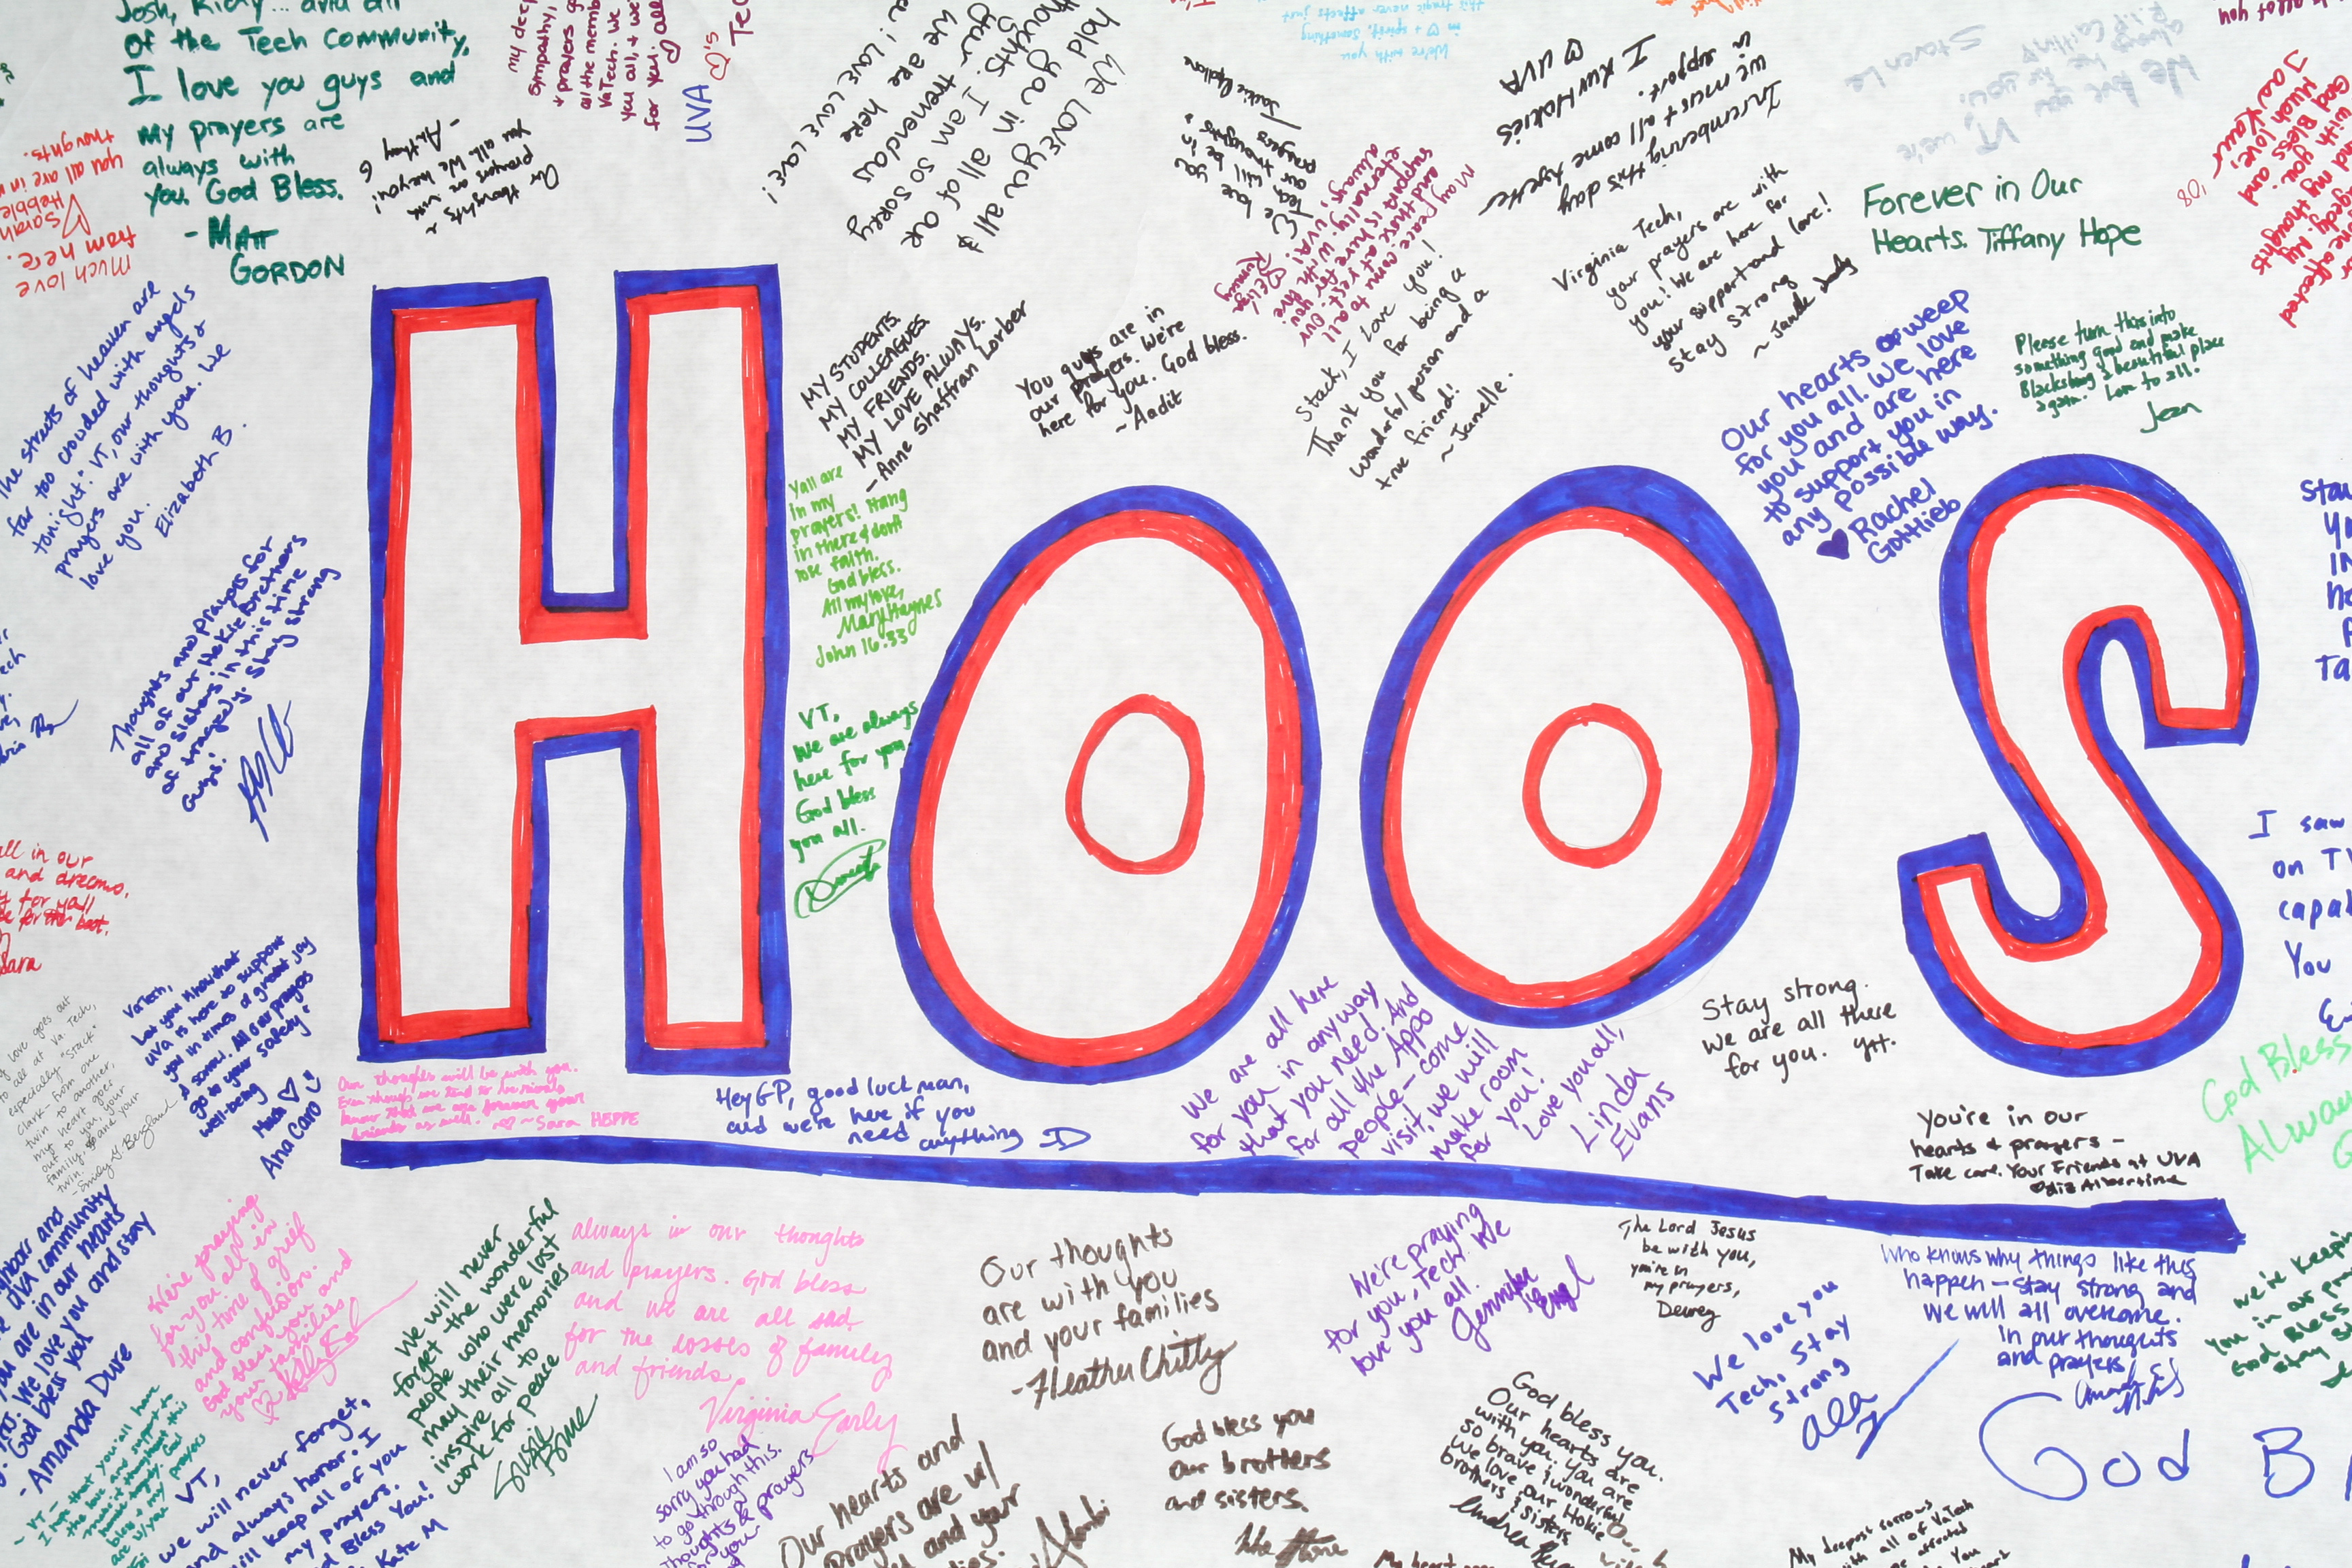 Josh, Ricky... and all
of the Tech community,
I love you guys and
my prayers are
always with
you. God Bless.
-Matt
GORDON
my deep
sympathy,
all the memb
VaTech. We
you all, + we'
for you all
UVA ♡'s
Our thoughts &
prayers are with
you all. We love you!
-Anthony G
thoughts.
you all are in
Sarah
Hebble
from here.
Much love
hold
We love you all &
you in all of our
thoughts. I am so sorry
your tremendous
We are here
LOVE LOVE LOVE!
We're with you
in ♡ + spirit. Something
this tragic never affects just
In remembering this day
we must all come together
in support.
I our Hokies
♡ UVA
May peace come to all
and those at rest. Our
support is here for you
eternally. With love
always, UVA!
Virginia Tech,
our prayers are with
you! We are here for
your support and love!
Stay strong
We are
here for you.
VT, we're
Steven Le
Forever in Our
Hearts. Tiffany Hope
and my thoughts
with you.
God Bless and
Much love,
Jas Kaur
'08
The streets of heaven are
far too crowded with angels
tonight." VT, our thoughts &
prayers are with you. We
love you.
Elizabeth B.
MY STUDENTS.
MY COLLEAGUES.
MY FRIENDS.
MY LOVE ALWAYS.
-Anne Shaffran Lorber
You guys are in
our prayers. We're
here for you. God bless.
~Aadit
Stack, I love you!
Thank you for being a
wonderful person and a
true friend!
~Janelle.
Our hearts weep
for you all. We love
you and are here
to support you in
any possible way.
♥ Rachel
Gottlieb
Please turn this into
something good and make
Blacksburg a beautiful place
again. Love to all!
Jean
Yall are
in my
prayers! Hang
in there & don't
lose faith.
God bless.
All my love,
Mary Haynes
John 16:33
HOOS
Thoughts and prayers for
all of our Hokie brothers
and sisters in this time
of tragedy. Stay strong
guys!
VT,
We are always
here for you
God bless
you all.
all in our
and dreams.
for yall
Sara
I saw
on TV
capab
You
VaTech,
Let you know that
UVA is here to support
you in times of great joy
& sorrow. All our prayers
go to your safety &
well-being
Much ♡
Ana Caro
love goes out
to all at Va. Tech,
especially "Stack"
Clark- from one
twin to another,
my heart goes
out to you, your
family, and your
twin.
Our thoughts will be with you.
Even though we tend to be rivals
know that we are forever your
friends as well. ~Sara HEPPE
Hey GP, good luck man,
and we're here if you
need anything
We are all here
for you in anyway
that you need. And
for all the Apps
people - come
visit, we will
make room
for you!
Love you all,
Linda
Evans
Stay strong.
We are all there
for you.
You're in our
hearts & prayers -
Take care. Your Friends at UVA
♡Liz Albertine
God Bless
Alway
UVA community
you are in our hearts
We love you and stay
God bless you
-Amanda Dure
We're praying
for you all in
this time of grief
and confusion.
God bless you and
your families
We will never
forget the wonderful
people who were lost
may their memories
inspire all to
work for peace
always in our thoughts
and prayers. God bless
and we are all sad
for the losses of family
and friends.
Virginia Early
Our thoughts
are with you
and your families
-Heather Chitty
We're praying
for you, Tech. We
love you all.
Jennifer
Engel
The Lord Jesus
be with you,
you're in
my prayers,
Dewey
We love you
Tech, Stay
strong
Who knows why things like this
happen - stay strong and
we will all overcome.
In our thoughts
and prayers
We're keeping
you in our pra
God Bless
stay s
VT,
we will never forget,
and always honor. I
will keep all of you
my prayers.
God Bless You!
Kate M
I am so
sorry you had
to go through this.
Thoughts &
prayers
Our hearts and
prayers are w/
and your
God bless you
our brothers
and sisters.
God bless you.
Our hearts are
with you. You are
so brave & wonderful
We love our Hokie
brothers & sisters
God B
My deepest sorrows
with all of VaTech